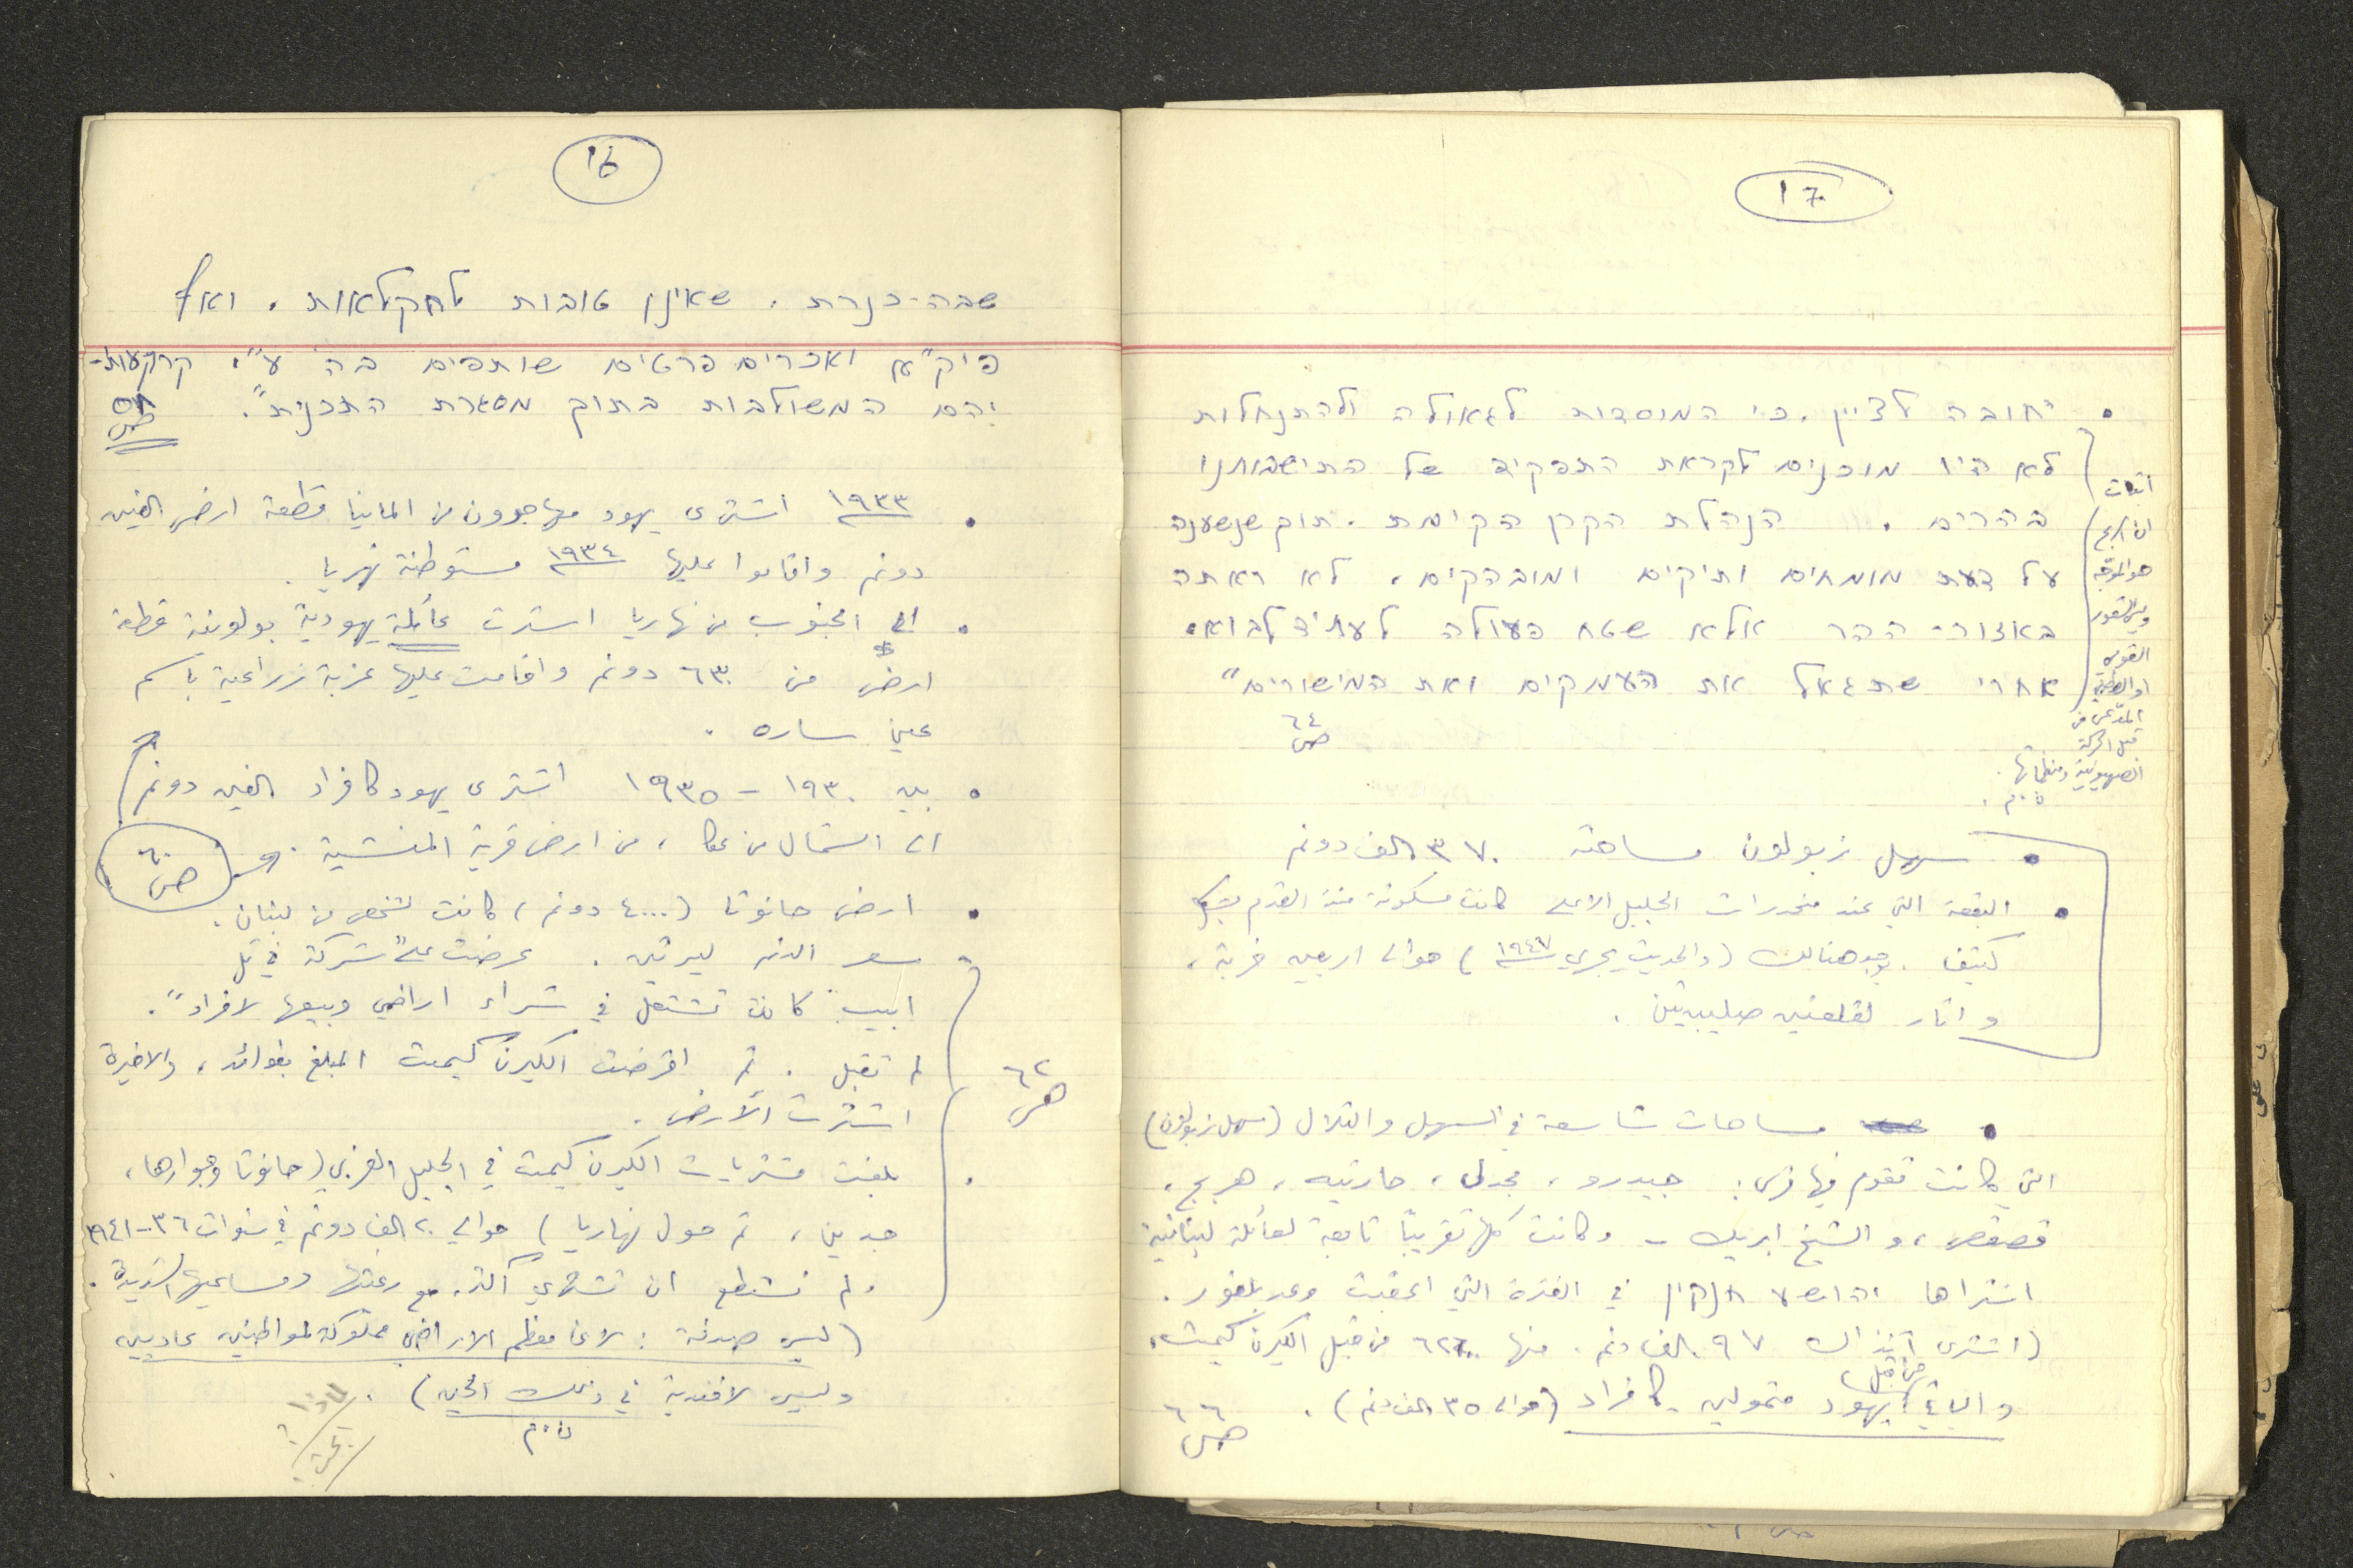 16
שבה-כנרת, שאינן טובות לחקלאות. ואף
פיק"א ואכרים פרטים שותפים בה ע"י קרקעות-
יהם המשולבות בתוך מסגרת התכנית".
ص
١٩٣٣ اشترى يهود مهاجرون من المانيا قطعة ارض الفين
دونم واقاموا عليها ١٩٣٤ مستوطنة نهريا.
الى الجنوب من نهاريا اشترت عائلة يهودية بولونية قطعة
ارض من ٦٣٠ دونم واقامت عليها عزبة زراعية باسم
عين ساره.
بين ١٩٣٠ - ١٩٣٥ اشترى يهود كافراد الفين دونم
الى الشمال من عكا، من ارض قرية المنشية.
ص ٦٠
ارض حانوتا (٤٠٠٠ دونم) كانت لشخص من لبنان.
سعر الدنم ليرتين. عرضت على "شركة في تل
ابيب كانت تشتغل في شراء اراضي وبيعها لافراد".
لم تقبل. ثم اقرضت الكيرن كيمت المبلغ بفوائد، والاخيرة
اشترت الأرض.
ص ٦٢
بلغت مشتريات الكيرن كيمت في الجليل الغربي (حانوتا وجوارها،
جدين، ثم حول نهاريا) حوالي ٢٠ الف دونم في سنوات ٣٦-١٩٤١
ولم تستطع ان تشتري اكثر. مع رغبتها ومساعيها الشديدة.
(ليس صدفة: لان معظم الاراضي مملوكة لمواطنين عاديين
وليس لافندية في ذلك الحين).
ن.م
17
חובה לציין, כי המוסדות לגאולה ולהתנחלות
לא היו מוכנים לקראת התפקיד של התישבותנו
בהרים. הנהלת הקרן הקימת, תוך שנשענה
על דעת מומחים ותיקים ומובהקים, לא ראתה
באזור-ההר אלא שטח פעולה לעתיד לבוא,
אחרי שתגאל את העמקים ואת המישורים"
ص ٦٤
اثبات
ان الربح
هو الموجّه
وليس الشعور
القومي
او الوطني
المدّعى من
قبل الحركة
الصهيونية ومنظماتها.
ن.م.
سهل زبولون مساحته ٣٧٠ الف دونم
البقعة التي عند منحدرات الجليل الاعلى كانت مسكونة منذ القدم بشكل
كثيف. يوجد هنالك (والحديث يجري ١٩٤٧) حوالي اربعين خربة،
واثار لقلعتين صليبيتين.
مساحات شاسعة في السهل والتلال (سهل زبولون)
التي كانت تقوم فيها قرى: جيدرو، مجدل، حارثيه، هربج،
قصقص، والشيخ ابريك - وكانت كلها تقريبًا تابعة لعائلة لبنانية
اشتراها יהושע חנקין في الفترة التي اعقبت وعد بلفور.
(اشترى آنذاك ٩٧ الف دنم. منها ٦٢٠٠٠ من قبل الكيرن كيمت،
والباقي من قبل يهود متمولين كافراد (حوالي ٣٥ الف دنم).
ص ٦٦